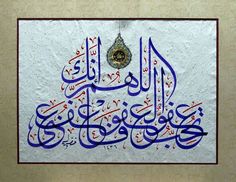 اللهم إنك
عفو تحب العفو فاعف عني